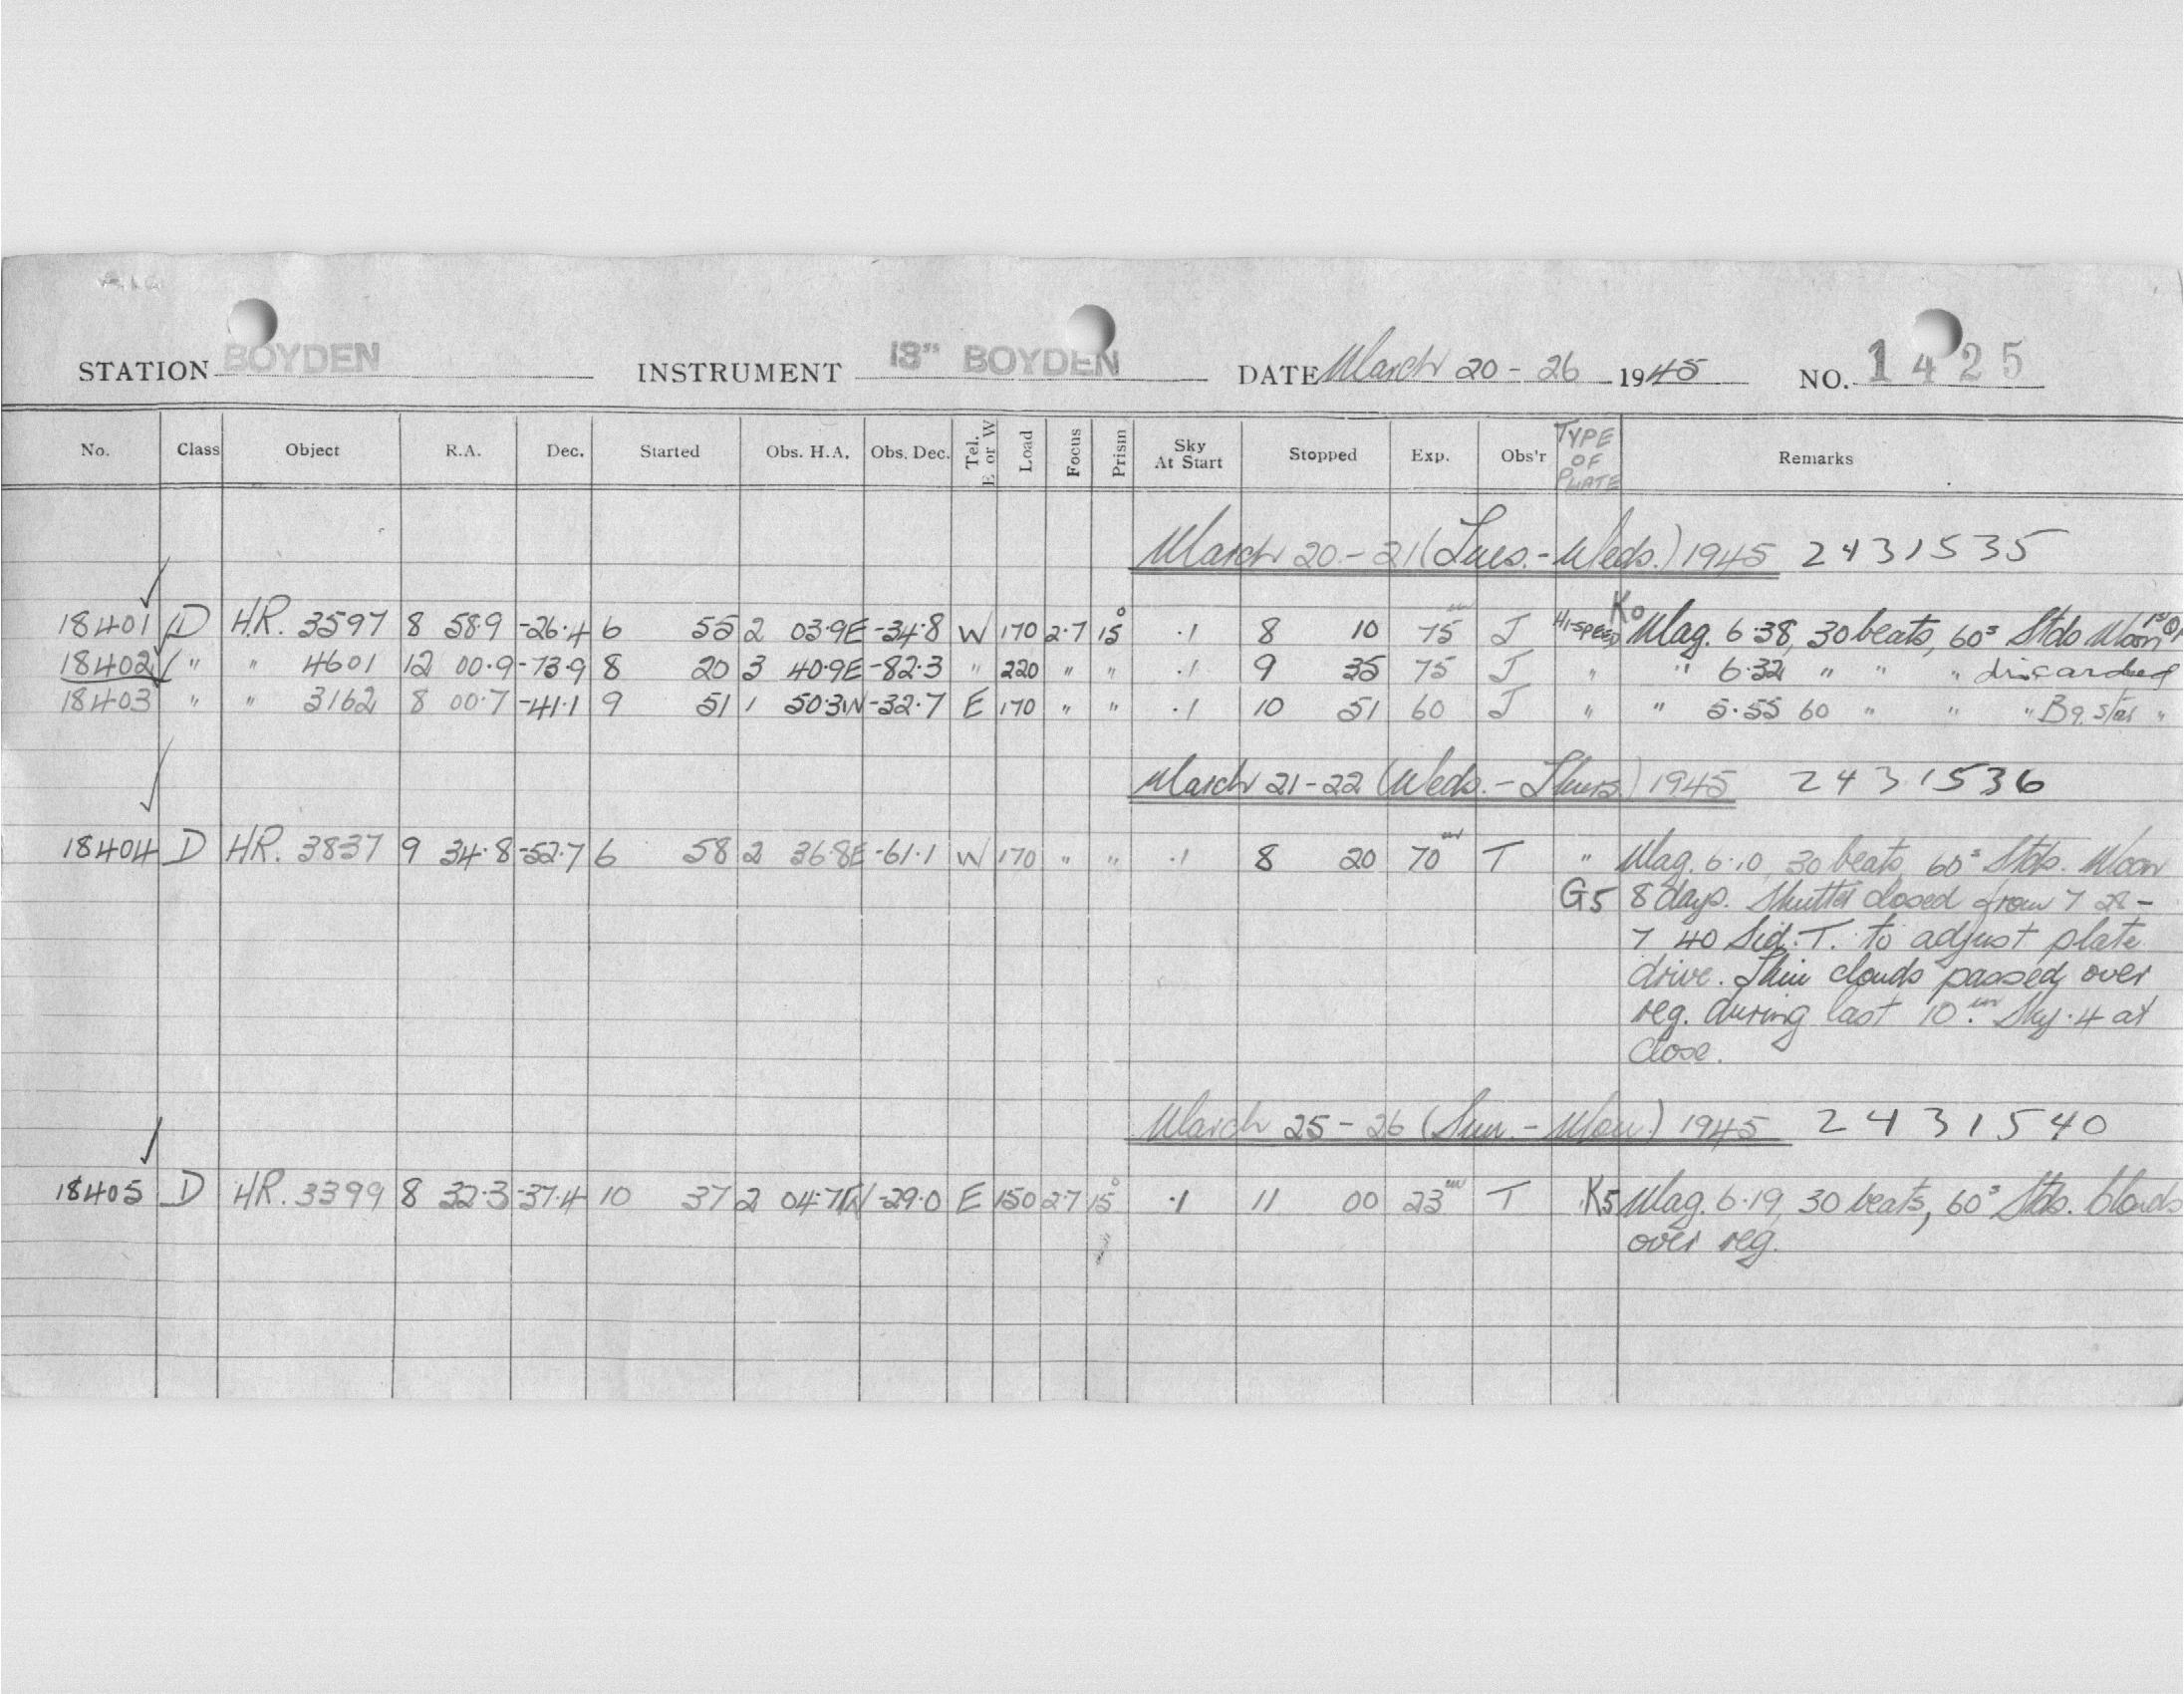 STATION BOYDEN INSTRUMENT 13" BOYDEN DATE March 20-26 1945 NO. 1425
No. Class Object R.A. Dec. Started Obs. H.A. Obs. Dec. Tel. E or W Load Focus Prism Sky At Start Stopped Exp. Obs'r TYPE OF PLATE Remarks
March 20-21 (Tues.-Weds.) 1945 2431535
18401 D H.R. 3597 8 58.9 -26.4 6 55 2 03.9E -34.8 W 170 2.7 15° .1 8 10 75m J HI-SPEED K0 Mag. 6.38, 30 beats, 60s Stds Moon 1st Q,
18402 " " 4601 12 00.9 -73.9 8 20 3 40.9E -82.3 " 220 " " .1 9 35 75 J " " 6.32 " " " discarded
18403 " " 3162 8 00.7 -41.1 9 51 1 50.3W -32.7 E 170 " " .1 10 51 60 J " " 5.55 60 " " " B9 star "
March 21-22 (Weds.-Thurs.) 1945 2431536
18404 D HR. 3837 9 34.8 -52.7 6 58 2 36.8E -61.1 W 170 " " .1 8 20 70m T " Mag. 6.10, 30 beats, 60s Stds. Moon
G5 8 days. Shutter closed from 7 28 -
7 40 Sid. T. to adjust plate
drive. Thin clouds passed over
reg. during last 10m. Sky .4 at
close.
March 25-26 (Sun.-Mon.) 1945 2431540
18405 D HR. 3399 8 32.3 -37.4 10 37 2 04.7W -29.0 E 150 2.7 15° .1 11 00 23m T K5 Mag. 6.19, 30 beats, 60s Stds. Clouds
over reg.